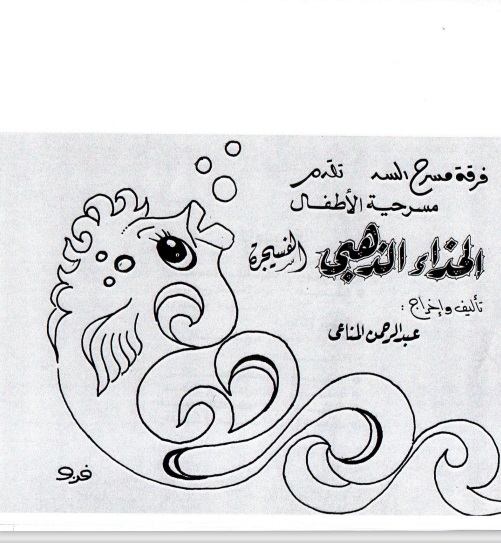 فرقة مسرح السد تقدم
مسرحية الأطفال
الحذاء الذهبي الفسيجرة
تأليف وإخراج :
عبدالرحمن المناعي